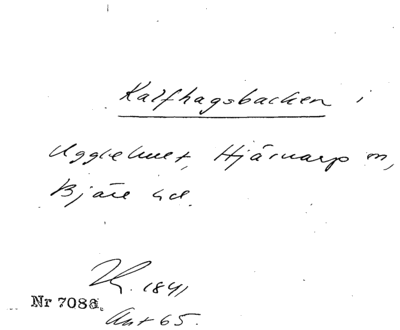 Kalfhagsbacken i
Ugglehult, Hjärnarp sn,
Bjäre hd.
1841
Nr 7088.
Ant 65.